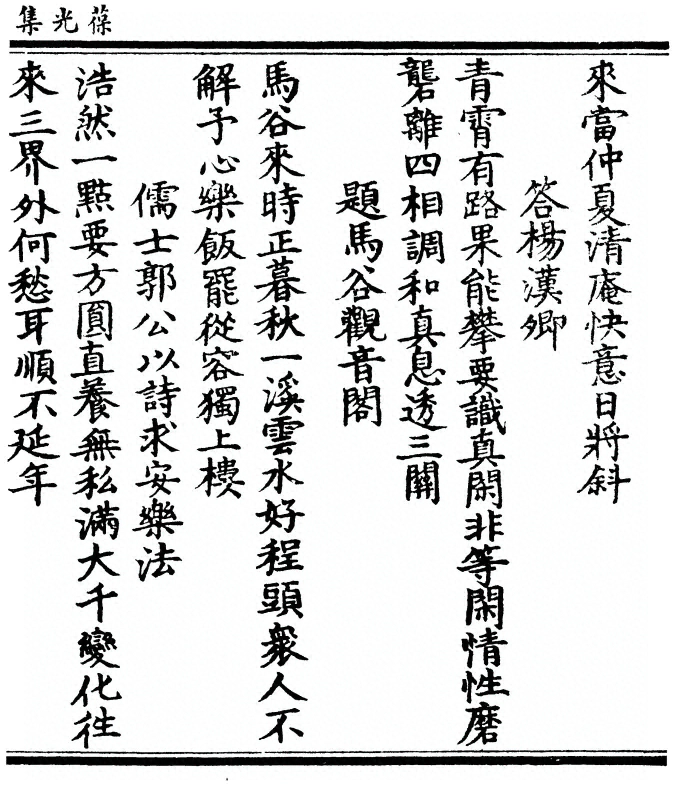 葆光集
來當仲夏清庵快意日將斜
答楊漢卿
青霄有路果能攀要識真閑非等閑情性磨
礱離四相調和真息透三關
題馬谷觀音閣
馬谷來時正暮秋一溪雲水好程頭衆人不
解予心樂飯罷從容獨上樓
儒士郭公以詩求安樂法
浩然一點要方圓直養無私滿大千變化往
來三界外何愁耳順不延年